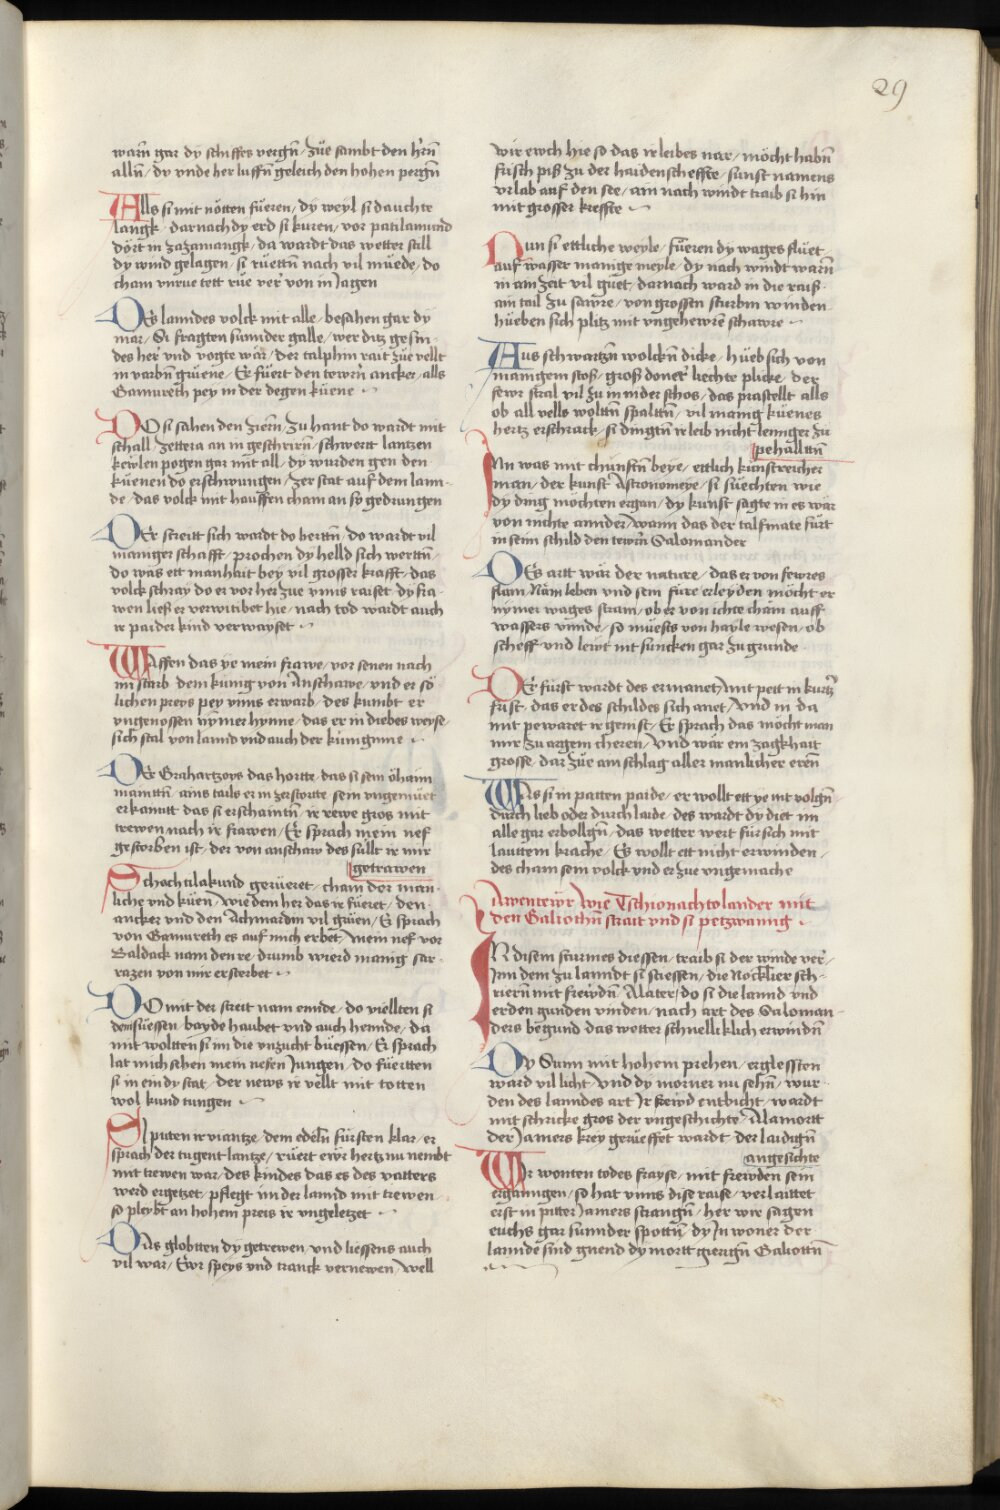 29
warn̄ gar dy schiffes vergn̄ / züe sambt den hr̄n
alln̄ / dy vnde her luffn̄ geleich den hohen pergn̄
Alls si mit nötten füeren / dy weyl si dauchte
langk / darnach dy erd si kuren / vor patilamund
dört in zazamangk / da wardt das wetter still
dy wind gelagen / si rüettn̄ nach vil müede / do
cham vnrue tett rüe ver von in Jagen
Des lanndes volck mit alle / besahen gar dy
mar / Si fragten sunnder galle / wer ditz gesin
des her vnd vogte wär / der talphin rait züe vellt
in varbn̄ grüene / Er füert den tewrn̄ ancker / alls
Gamureth pey in der degen küene
DO si sahen den ziern̄ / zu hant do wardt mit
schall / zettera an in geschrirn̄ / schwert lantzen
kewlen pogen gar mit all / dy wurden gen den
küenen do erschwungen / zer stat auf dem lann
de / das volck mit hauffen cham an sy gedrungen
Der streitt sich wardt do herttn̄ / do wardt vil
maniger schafft / prochen dy helld sich wertn̄ /
do was ett manhait bey vil grosser krafft / das
volck schray do er vor her züe vnns raiset / dy fra
wen ließ er verwitibet hie / nach tod wardt auch
ir paider kind verwayset
WAffen das ye mein frawe / vor senen nach
im starb / dem künig von Anschawe / vnd er sö
lichen preys pey vnns erwarb / des kumbt er
vngenossen nymer hynne / das er in diebes weyse
sich stal von lannd vnd auch der künignnē
Der Grahartzoys das hortte / das si sein öhaim
nanttn̄ / ains tails er in zerstortte / sein vngemüet
erkanntt das si erschaintn̄ / ir rewe gros mit
trewen nach ir frawen / Er sprach mein nef
gestorben ist / der von anschaw des süllt ir mir
getrawen
Schoch tilakund gerüeret / cham der man
liche vnd küen / wie dem her das ir füeret / den
ancker vnd den Achmardin vil grüen / Er sprach
von Gamureth es auf mich erbet / mein nef vor
Baldack nam den re / drumb wierd manig sar
razen von mir ersterbet
DO mit der streit nam ennde / do viellten si
dem süessen / bayde haubet vnd auch hennde / da
mit wolttn̄ si im die vnzucht büessen / Er sprach
lat mich sehen mein nefen Jungen / do füertten
si in ein dy stat / der news ir vellt mit totten
wol kund tungen
SI puten ir viantze / dem edeln̄ fürsten klar / er
sprach der tugent lantze / rüert ewr hertz nu nembt
mit trewen war / des kindes das es des vatters
werd ergetzet / pflegt im der lannd mit trewen
so pleybt an hohem preis ir vngeletzet
Das globtten dy getrewen / vnd liessens auch
vil war / Ewr speys vnd tranck vernewen / well
wir ewch hie so das ir leibes nar / möcht habn̄
frisch piß zu der haidenscheffte / sunst namens
vrlab auf den see / ain nach windt traib si hin
mit grosser kreffte
Nun si ettliche weyle / füeren dy wages flüet
auf wasser manige meyle / dy nach windt warn̄
in ain zeit vil güet / darnach ward in die raiß
ain tail zu sawre / von grossen sturbm winden
hüeben sich plitz mit vngehewrē schawre
Aus schwartzn̄ wolckn̄ dicke / hüeb sich von
manigem stoß / groß doner liechte plicke / der
fewr stral vil zu in nider schos / das prastellt alls
ob all vells wolttn̄ spalttn̄ / vil manig küenes
hertz erschrack / si dingtn̄ ir leib nicht lennger zu
pehalltn̄
INn was mit chünstn̄ beye / ettlich künstreicher
man / der kunst Astronomeye / si süechten wie
dy ding möchten ergan / dy kunst sagte in es wär
von nichte annder / wann das der talfinate fürt
in seim schild den tewrn̄ Salomander
Des artt wär der nature / das er von fewres
flam / Näm leben vnd sein füre / erleyden möcht er
nymer wages stram / ob er von ichte cham auff
wassers vnnde / so müests von hayle wesen / ob
scheff vnd lewt nit suncken gar zu grunde
Der fürst wardt des ermanet / mit pett in kurtz
frist / das er des schildes sich anet / vnd in da
mit pewaret ir genist / Er sprach das möcht man
mir zu argem cheren / vnd wär ein zagkhait
grosse / dar züe ain schlag aller manlicher eren
WAs si in patten paide / er wollt ett ye nit volgn̄
durch lieb oder durch laide / des wardt dy diet im
alle gar erbollgn̄ / das wetter wert für sich mit
lauttem krache / Es wollt ett nicht erwinden
des cham sein volck vnd er züe vngemache
Awentewr Wie Tschionachtolander mit
den Galiothn̄ strait vnd si petzwanng
IN disem sturmes diessen / traib si der winde ver
Inn dem zu lanndt si stiessen / die Nocklier sch
riern̄ mit frewdn̄ Alater / do si die lannd vnd
erden gunden vinden / nach art des Saloman
ders begund das wetter schnelliklich erwindn̄
Dy Sunn mit hohem prehen / erglessten
ward vil licht / vnd dy morner nu sehn̄ / wur
den des lanndes art Ir frewd entbicht / wardt
mit schricke gros der vngeschichte / Alamortt
der Jamers krey gerüeffet wardt / der laidign̄
angesichte
WIr wonten todes frayse / mit frewden sein
erganngen / so hat vnns dise raise / verlaittet
erst in pitter Jamers strangn̄ / her wir sagen
euchs gar sunnder spottn̄ / dy Inwoner der
lannde sind gnend dy mortt gierign̄ Galiottn̄